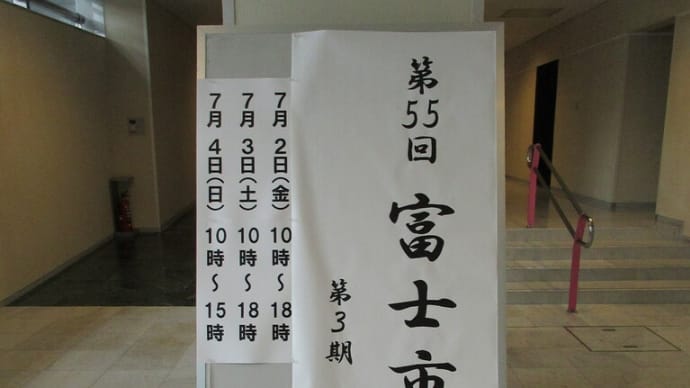 第55回 富士市
第3期
7月2日(金) 10時～18時
7月3日(土) 10時～18時
7月4日(日) 10時～15時